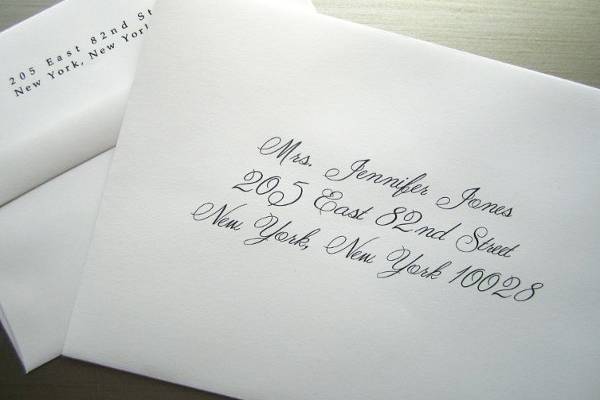 205 East 82nd St
New York, New York
Mrs. Jennifer Jones
205 East 82nd Street
New York, New York 10028